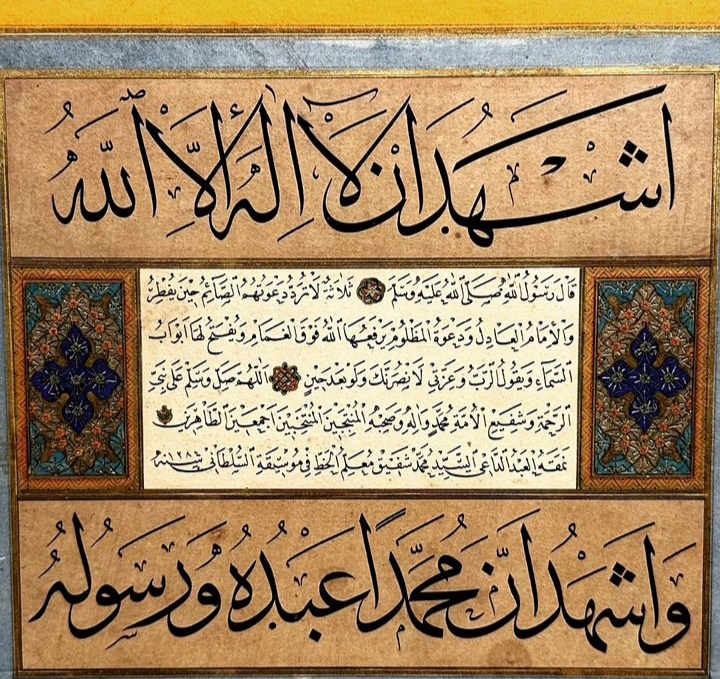 اشهد ان لا اله الا الله
قال رسول الله صلى الله عليه وسلم ثلاثة لا ترد دعوتهم الصائم حين يفطر
والامام العادل ودعوة المظلوم يرفعها الله فوق الغمام ويفتح لها ابواب
السماء ويقول الرب وعزتي لانصرنك ولو بعد حين اللهم صل وسلم على نبي
الرحمة وشفيع الامة محمد واله وصحبه المنتجبين اجمعين الطاهرين
نمقه العبد الداعي السيد محمد شفيق معلم الخط في موسيقة السلطاني سنه
واشهد ان محمدا عبده ورسوله